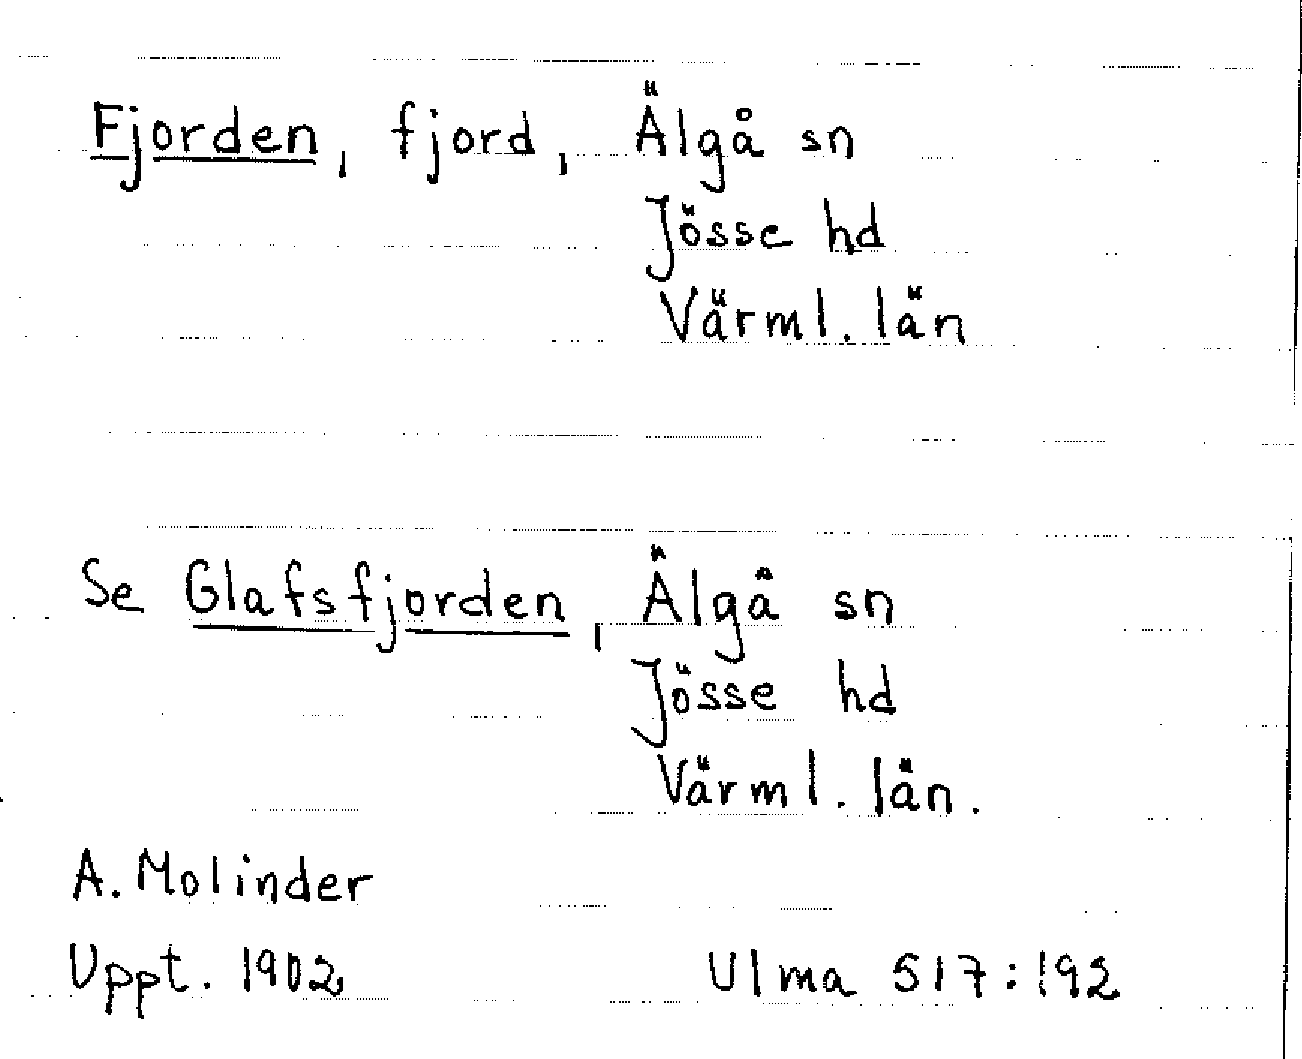 Fjorden, fjord, Älgå sn
Jösse hd
Värml. län
Se Glafsfjorden, Älgå sn
Jösse hd
Värml. län.
A. Molinder
Uppt. 1902
Ulma 517:192